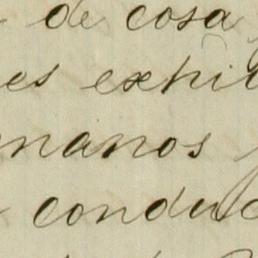 de cosa
es exhi
manos
conduc